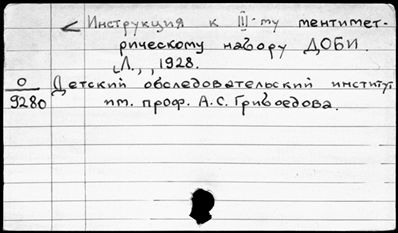 < Инструкция к III-му ментимет-
рическому набору ДОБИ.
Л., , 1928.
О
9280
Детский обследовательский институт
им. проф. А.С. Грибоедова.